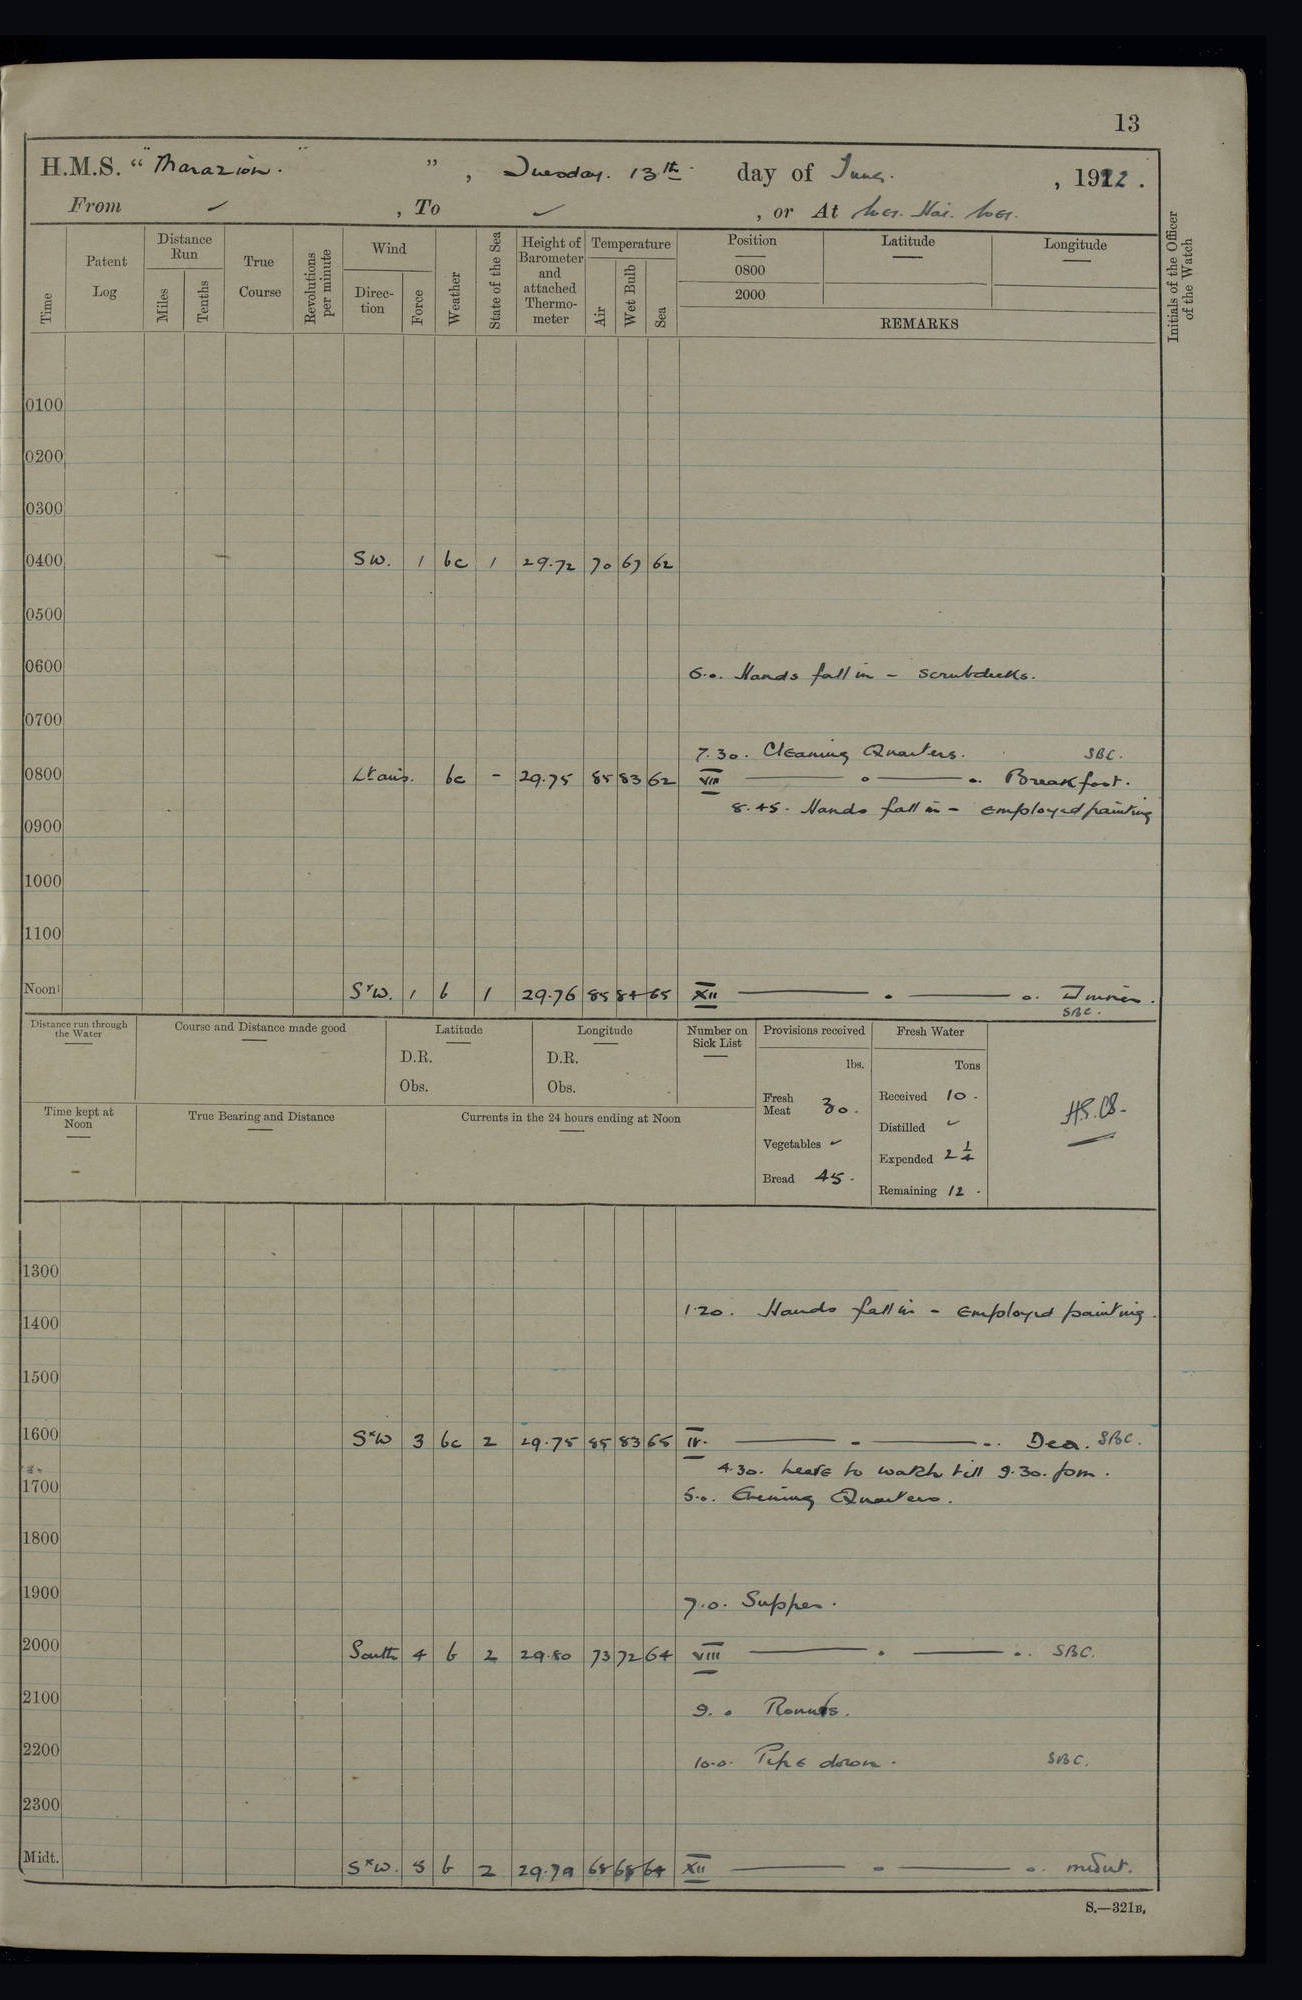 13
H.M.S. "Marazion." ", Tuesday. 13th day of June. , 1922.
From ✓ , To ✓ , or At Wei. Hai. Wei.
Time
Patent Log
Distance Run
Miles
Tenths
True Course
Revolutions per minute
Wind
Direction
Force
Weather
State of the Sea
Height of Barometer and attached Thermometer
Temperature
Air
Wet Bulb
Sea
Position
0800
2000
Latitude
Longitude
REMARKS
Initials of the Officer of the Watch
0100
0200
0300
0400 SW. 1 bc 1 29.72 70 67 62
0500
0600
6.0. Hands fall in - scrub decks.
0700
7.30. Cleaning Quarters. SBC.
0800 Lt airs. bc - 29.75 85 83 62 VIII Breakfast.
8.45. Hands fall in - employed painting
0900
1000
1100
Noon SxW. 1 b 1 29.76 85 84 65 XII Dinner.
SBC.
Distance run through the Water
Course and Distance made good
Latitude
D.R.
Obs.
Longitude
D.R.
Obs.
Number on Sick List
Provisions received
lbs.
Fresh Meat 30.
Vegetables ✓
Bread 45.
Fresh Water
Tons
Received 10.
Distilled ✓
Expended 2 1/4
Remaining 12.
Time kept at Noon
-
True Bearing and Distance
Currents in the 24 hours ending at Noon
1300
1.20. Hands fall in - employed painting.
1400
1500
1600 SxW 3 bc 2 29.75 85 83 65 IV. SBC.
4.30. Leave to watch till 9.30. pm.
1700
5.0. Evening Quarters.
1800
1900
7.0. Supper.
2000 South 4 b 2 29.80 73 72 64 VIII SBC.
2100
9.0 Rounds.
2200
10.0. Pipe down. SBC.
2300
Midt. SxW. 5 b 2 29.79 68 68 64 XII
S.—321B.